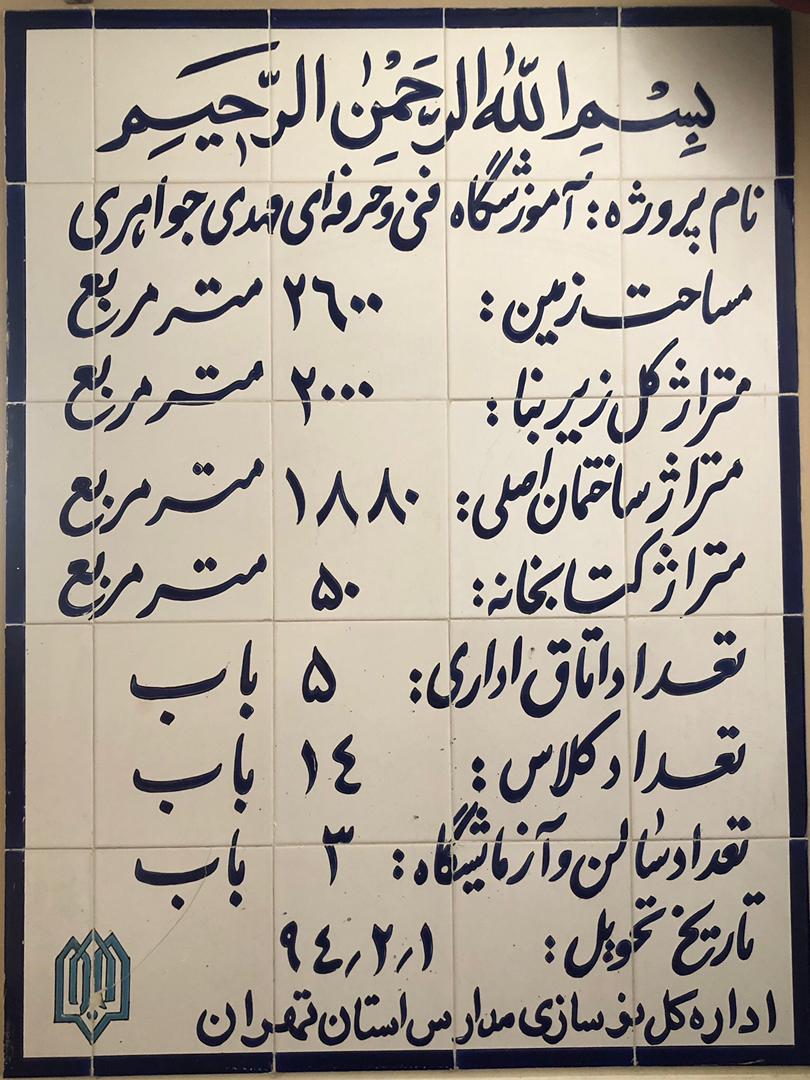 بِسْمِ اللّٰهِ الرَّحْمٰنِ الرَّحیمِ
نام پروژه : آموزشگاه فنی و حرفه ای مهدی جواهری
مساحت زمین : ۲۶۰۰ متر مربع
متراژ کل زیر بنا : ۲۰۰۰ متر مربع
متراژ ساختمان اصلی : ۱۸۸۰ متر مربع
متراژ کتابخانه : ۵۰ متر مربع
تعداد اتاق اداری : ۵ باب
تعداد کلاس : ۱۴ باب
تعداد سالن و آزمایشگاه : ۳ باب
تاریخ تحویل : ۹۴٫۲٫۱
اداره کل نوسازی مدارس استان تهران